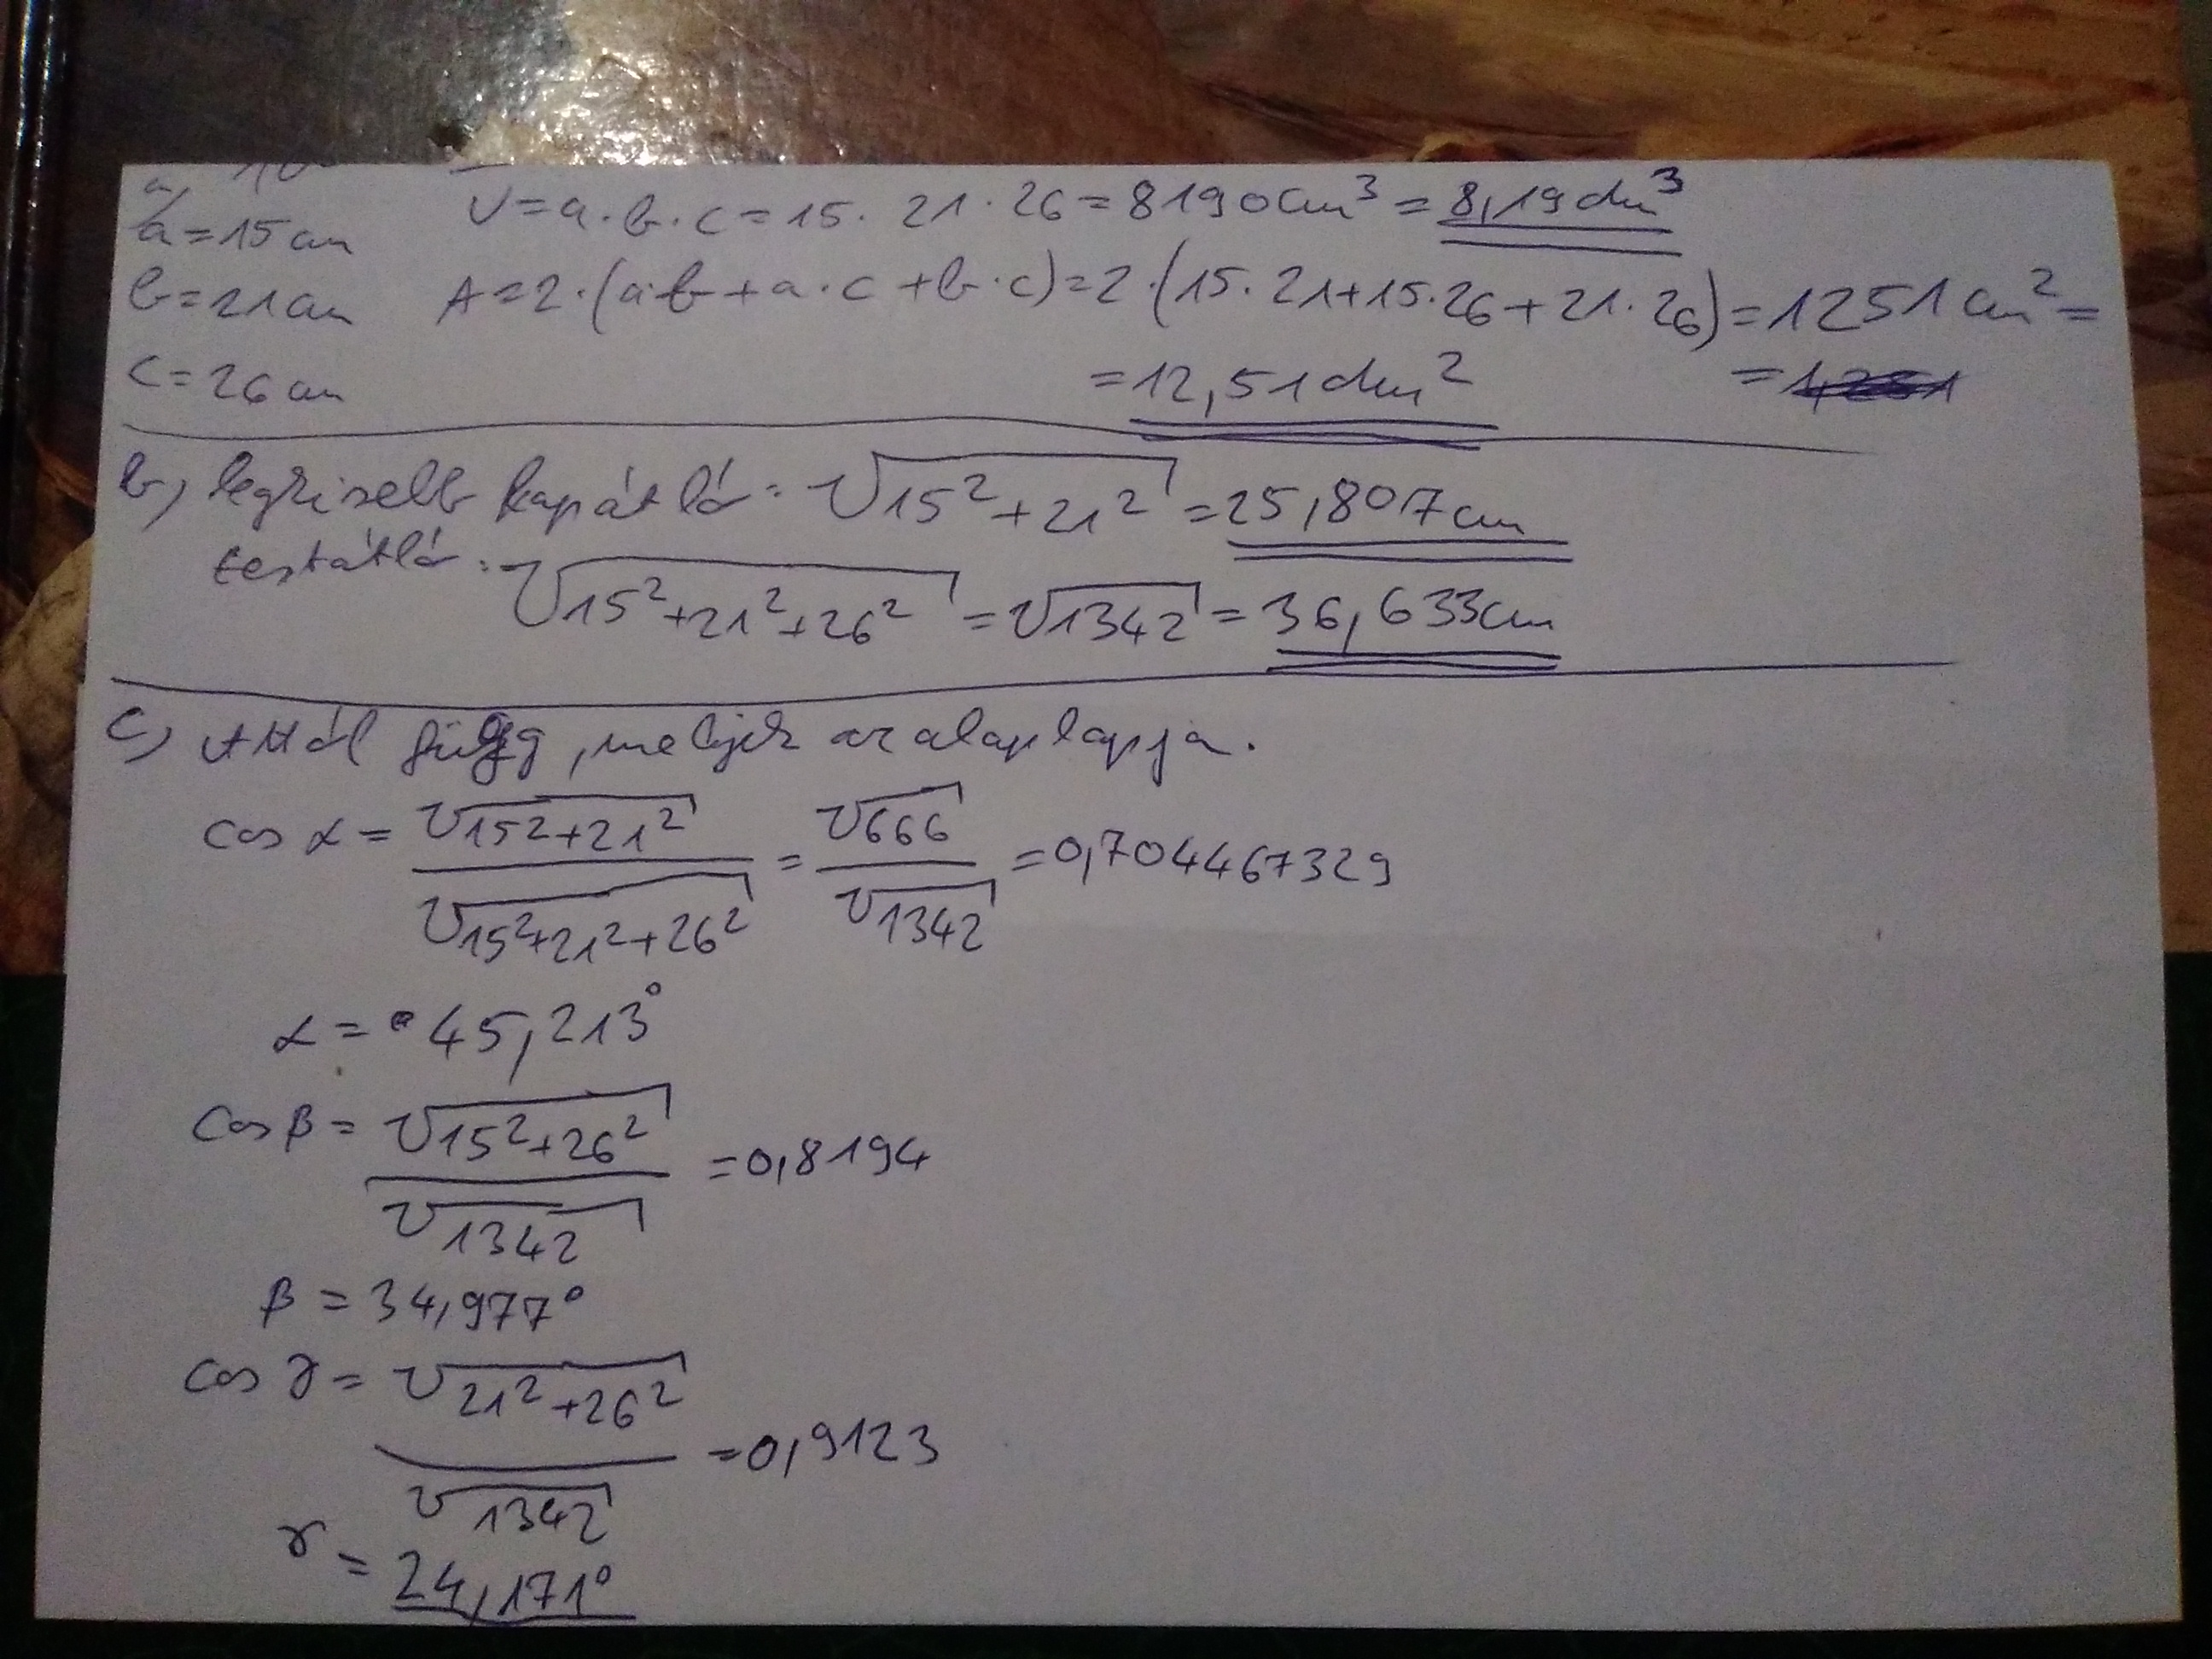 a = 15 cm
V = a · b · c = 15 · 21 · 26 = 8190 cm³ = 8,19 dm³
b = 21 cm
A = 2 · (a·b + a · c + b · c) = 2 · (15 · 21 + 15 · 26 + 21 · 26) = 1251 cm² =
c = 26 cm
= 12,51 dm²
=
b, legkisebb lapátló: √15² + 21² = 25,807 cm
testátló: √15² + 21² + 26² = √1342 = 36,633 cm
c, Attól függ, melyik az alaplapja.
cos α = √15² + 21² / √15² + 21² + 26² = √666 / √1342 = 0,704467329
α = 45,213°
cos β = √15² + 26² / √1342 = 0,8194
β = 34,977°
cos γ = √21² + 26² / √1342 = 0,9123
γ = 24,171°